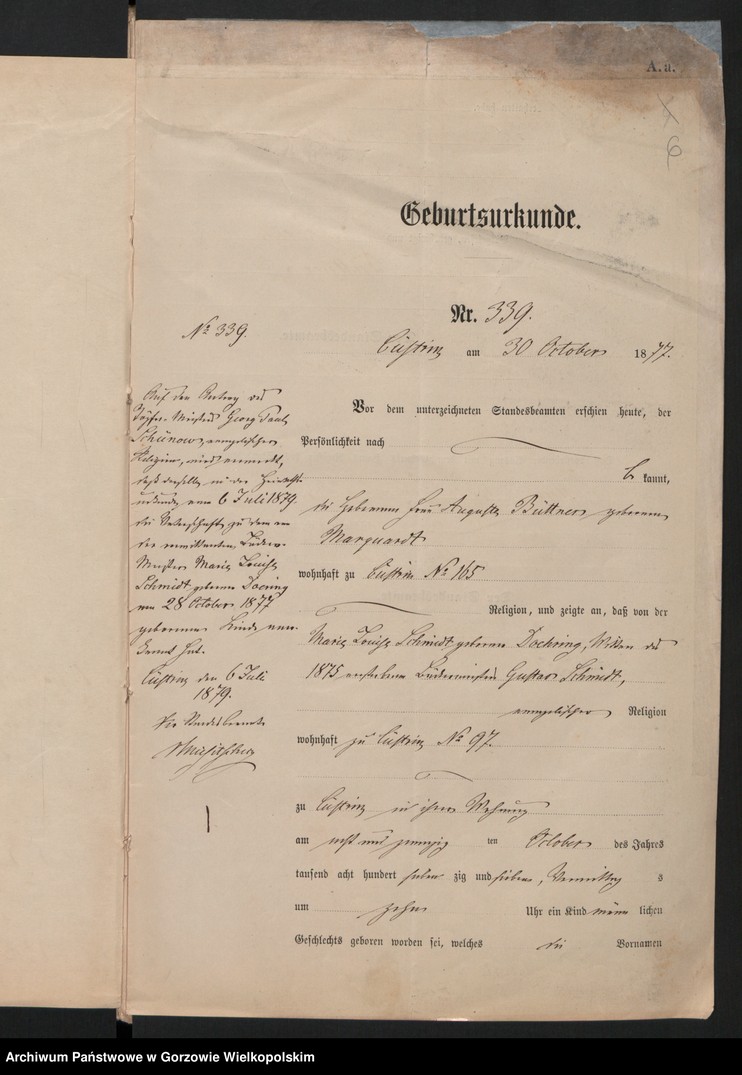 A.a.
6
Geburtsurkunde.
Nr. 339.
Cüstrin am 30 October 1877.
Vor dem unterzeichneten Standesbeamten erschien heute, der
Persönlichkeit nach
be kannt,
die Hebamme Frau Auguste Büttner, geborene
Marquardt
wohnhaft zu Cüstrin No 165
Religion, und zeigte an, daß von der
Marie Louise Schmidt geborene Doehring, Wittwe des
1875 verstorbenen Büdnermeisters Gustav Schmidt,
evangelischer Religion
wohnhaft zu Cüstrin No 97.
zu Cüstrin in ihrer Wohnung
am acht und zwanzig ten October des Jahres
tausend acht hundert sieben zig und sieben, Vormittag s
um zehn Uhr ein Kind männ lichen
Geschlechts geboren worden sei, welches die Vornamen
No 339.
Auf den Antrag des
Georg Paul
Schünow, evangelischer
Religion, wird vermerkt,
daß derselbe in der Heiraths-
urkunde vom 6 Juli 1879.
die Vaterschaft zu dem von
der verwittweten
Meister Marie Louise
Schmidt geborene Doering
am 28 October 1877
geborenen Kinde aner-
kannt hat.
Cüstrin den 6 Juli
1879.
Der Standesbeamte
Archiwum Państwowe w Gorzowie Wielkopolskim